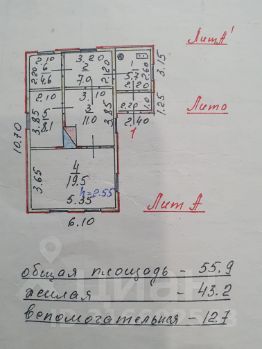 Лит А'
2.10
3.20
6
2
1
2.20
4.6
2.20
7.0
5.7
2.60
3.15
2.10
3.10
1.25
3.85
5
8.1
3
11.0
3.85
2.20
2.40
Лит а
10.70
1
3.65
4
19.5
h=2.55
5.35
6.10
Лит А
общая площадь - 55.9
жилая - 43.2
вспомогательная - 12.7